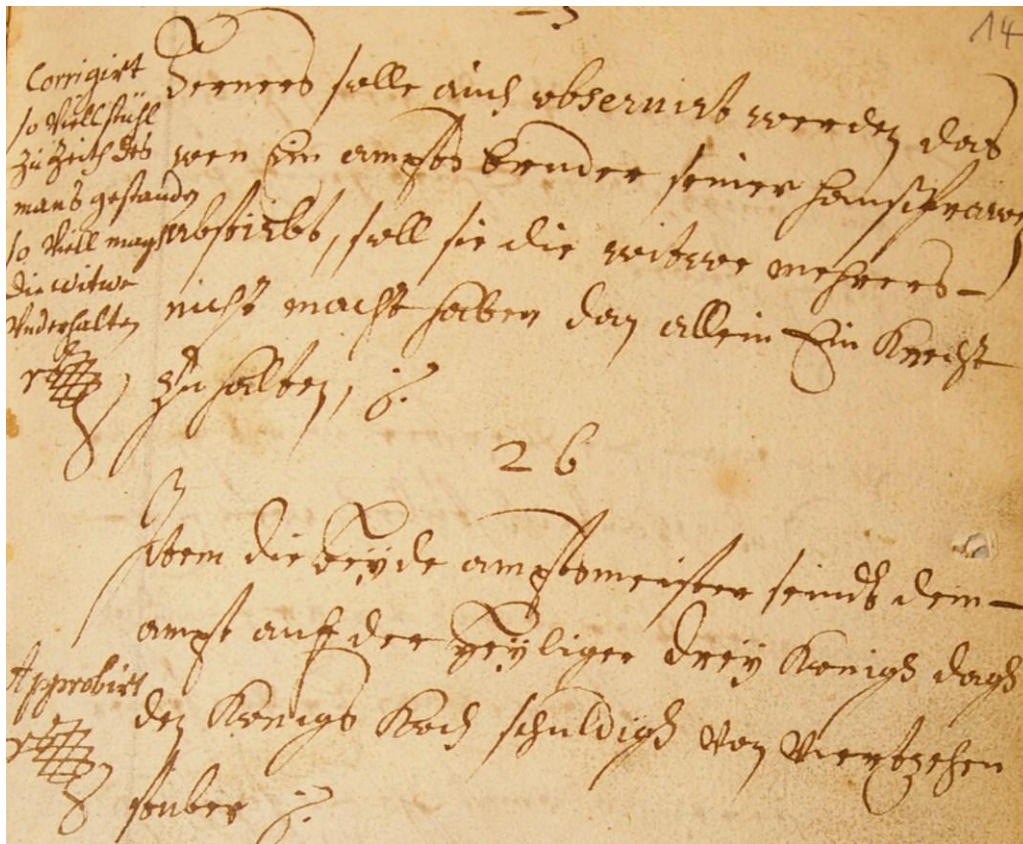 14
Corrigirt
so viell stühl
zu Zeith des
mans gestanden
so viell magh
die witwe
underhalten
Ferners solle auch obseruirt werden das
wen Ein ampts bruder seiner haussfrawen
abstirbt, soll sie die witwe mehrers
nicht macht haben dan allein Ein Knecht
zu halten,
26
Item die beÿde amptsmeister seindt dem
ampt auf der heÿliger dreÿ Konigh dagh
den Konigs Koch schuldigh von viertzehen
stuber
Approbirt